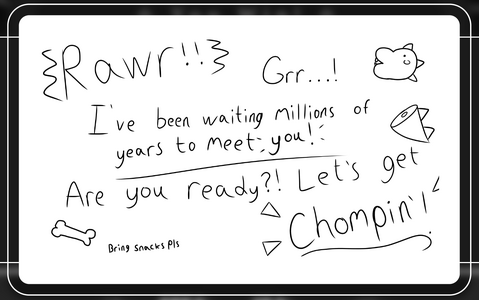 Rawr!! Grr...!
I've been waiting millions of
years to meet you!
Are you ready?! Let's get
Chompin'!
Bring snacks pls